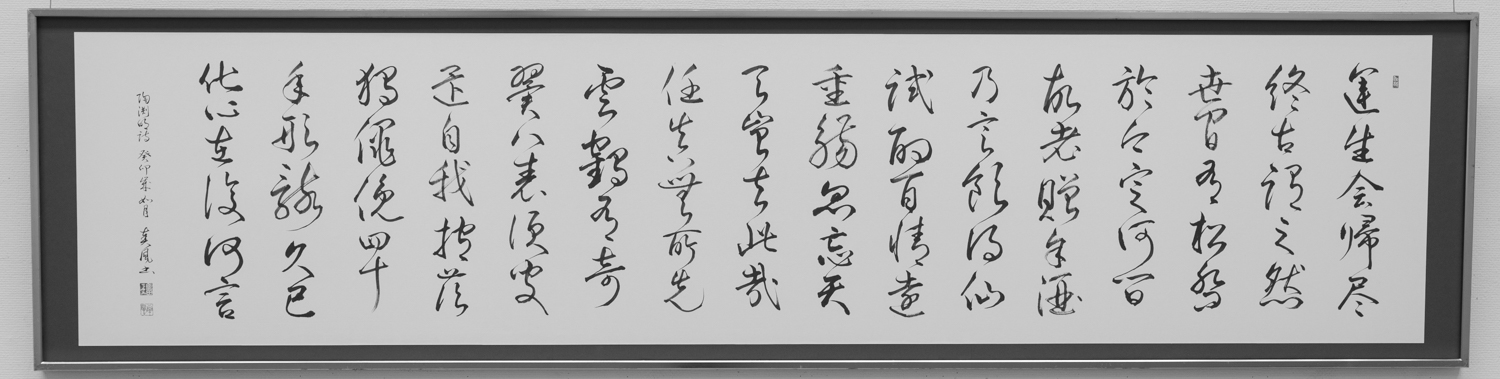 運生会帰尽
終古謂之然
世間有松喬
於今定何間
故老贈余酒
乃言飲得仙
試酌百情遠
重觴忽忘天
天豈去此哉
任真無所先
雲鶴有奇
翼八表須臾
還自我抱茲
独僶俛四十
年形骸久已
化心在復何言
陶淵明詩 癸卯歳如月 風書